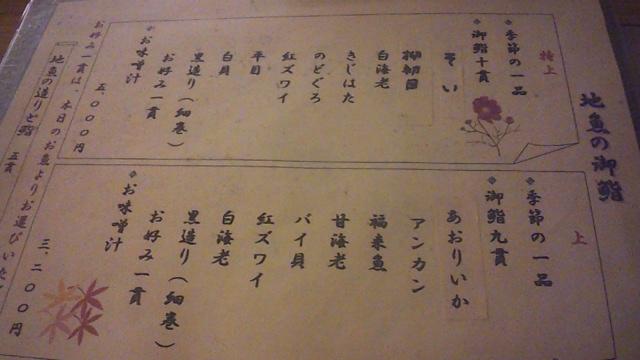 地魚の御鮨
特上
季節の一品
御鮨十貫
そい
柳胡目
白海老
きじはた
のどぐろ
紅ズワイ
平目
白貝
黒造り（細巻）
お好み一貫
お味噌汁
五、〇〇〇円
上
季節の一品
御鮨九貫
あおりいか
アンカン
福来魚
甘海老
バイ貝
紅ズワイ
白海老
黒造り（細巻）
お好み一貫
お味噌汁
三、二〇〇円
お好み一貫は、本日のお魚よりお選びいた
地魚の造りと鮨
五貫